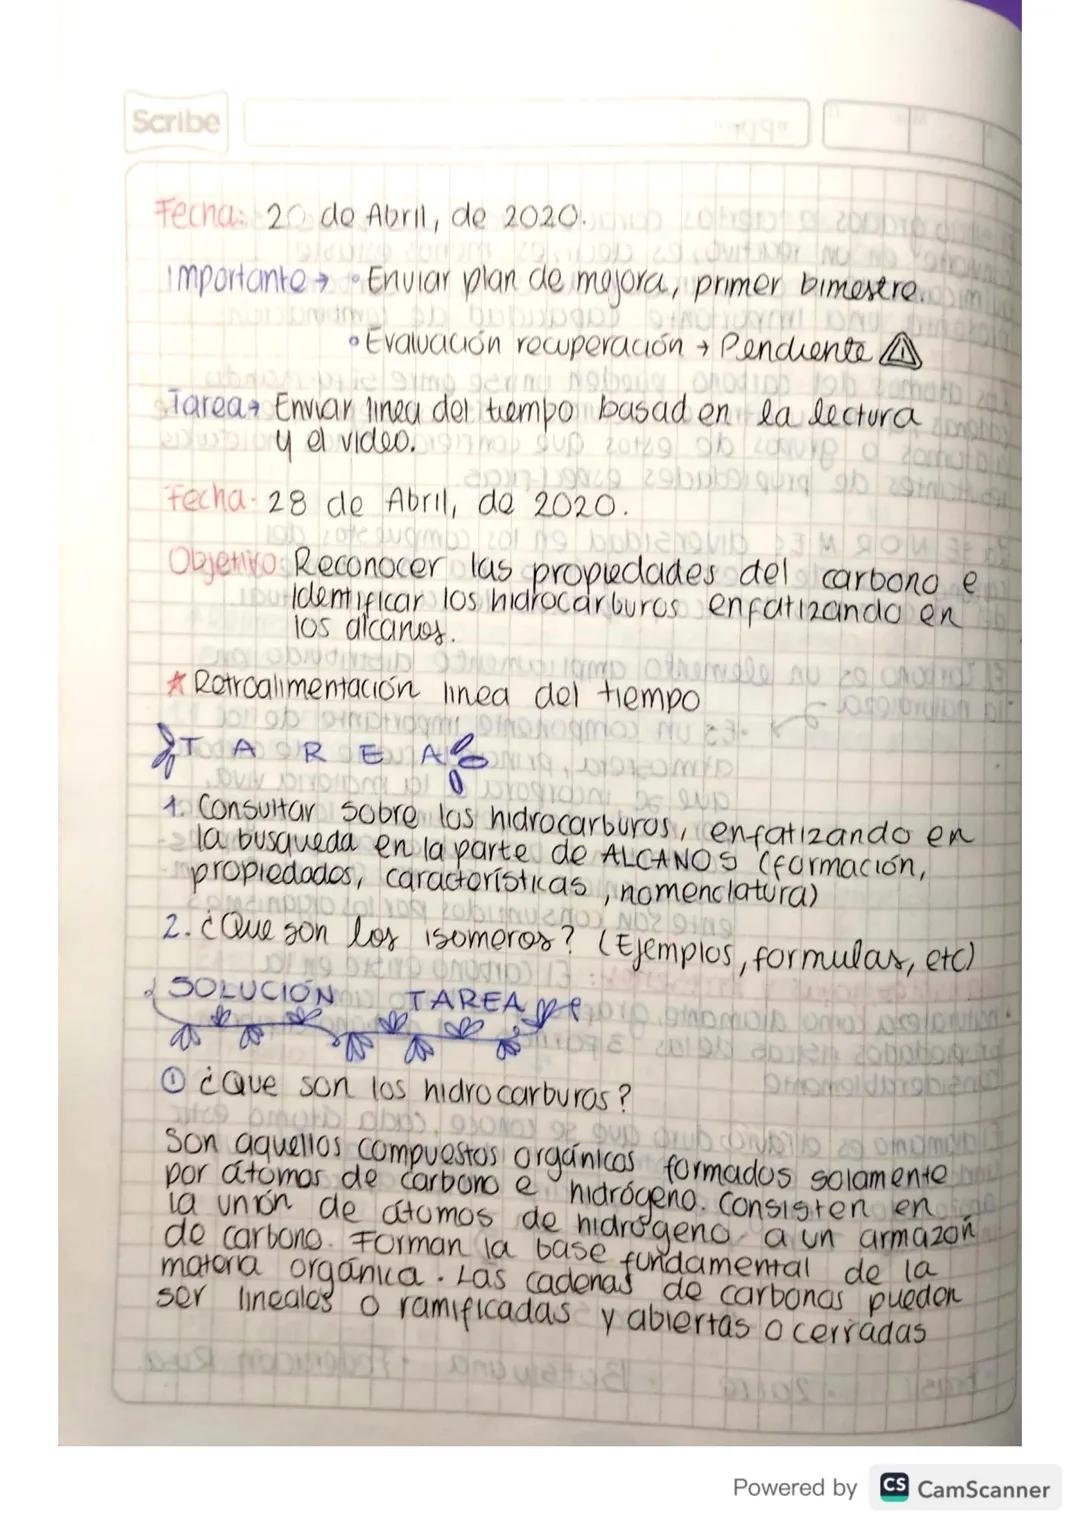 Scribe
Fecha: 20 de Abril, de 2020.
Importante → • Enviar plan de mejora, primer bimestre.
• Evaluación recuperación → Pendiente
Tarea → Enviar linea del tiempo basad en la lectura
y el video.
Fecha. 28 de Abril, de 2020.
Objetivo: Reconocer las propiedades del carbono e
Identificar los hidrocarburos enfatizando en
los alcanos.
* Retroalimentación linea del tiempo
TAREA
1. Consultar sobre los hidrocarburos, enfatizando en
la busqueda en la parte de ALCANOS (formación,
propiedades, características, nomenclatura)
2. ¿Que son los isomeros? (Ejemplos, formulas, etc)
SOLUCIÓN TAREA
① ¿Que son los hidrocarburos?
Son aquellos compuestos orgánicos formados solamente
por átomos de carbono e hidrógeno. Consisten en
la unión de átomos de hidrógeno a un armazón
de carbono. Forman la base fundamental de la
materia orgánica. Las cadenas de carbonos pueden
ser lineales o ramificadas y abiertas o cerradas
Powered by CS CamScanner